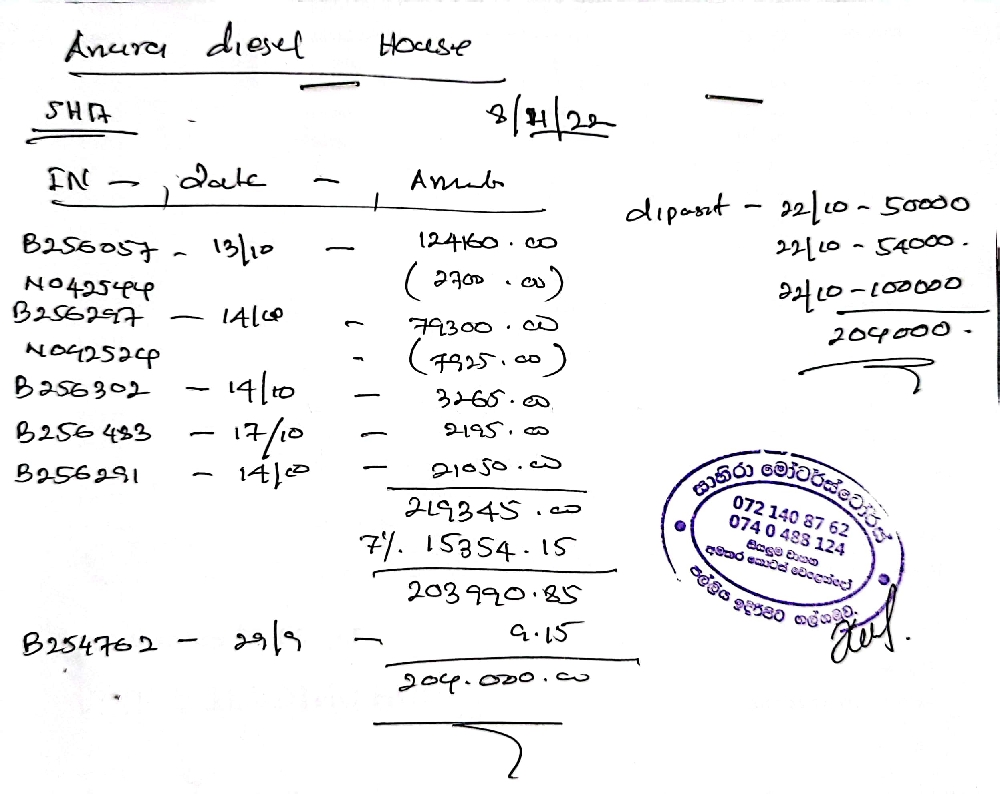 Anura diesel House
SHA
8/11/22
IN - , date - , Amub
B256057 - 13/10 - 124160.00
N042544 (2700.00)
B256297 - 14/10 - 79300.00
N042524 - (7925.00)
B256302 - 14/10 - 3265.00
B256483 - 17/10 - 2195.00
B256291 - 14/10 - 21050.00
219345.00
7%. 15354.15
203990.85
B254762 - 29/9 - 9.15
204.000.00
diposit - 22/10 - 50000
22/10 - 54000.
22/10 - 100000
204000.
සාහිරා මෝටර්ස්ටෝර්ස්
072 140 87 62
074 0 488 124
සියලුම වාහන
අමතර කොටස් වෙළෙන්දෝ
පල්ලිය ඉදිරිපිට ගල්ගමුව.